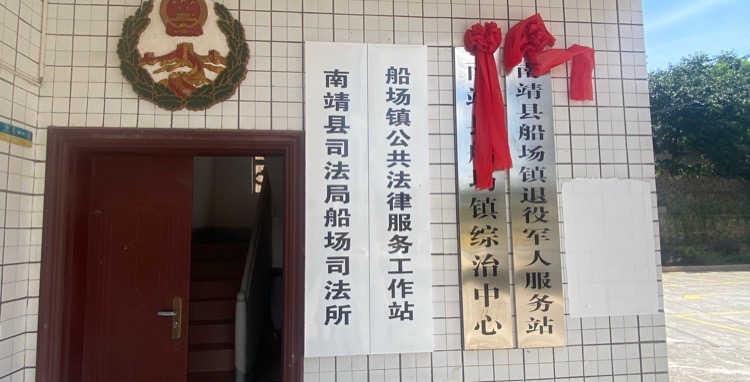 南靖县司法局船场司法所
船场镇公共法律服务工作站
南靖县船场镇综治中心
南靖县船场镇退役军人服务站